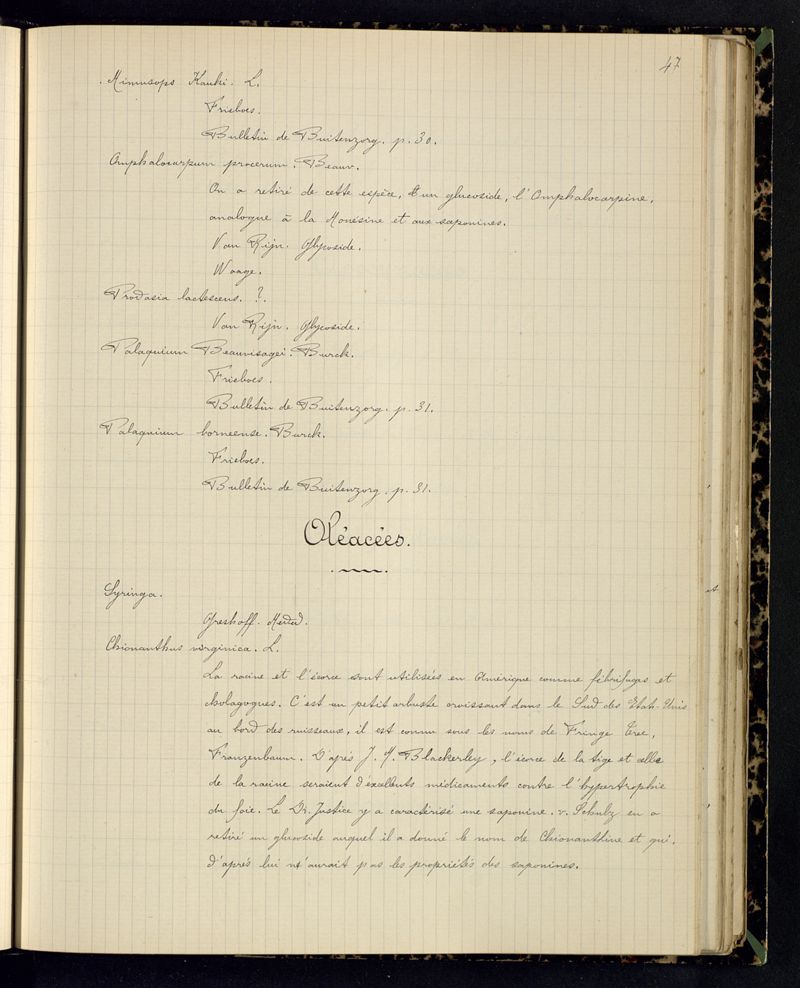 47
Mimusops Kauki. L.
Frieboes.
Bulletin de Buitenzorg. p. 30.
Omphalocarpum procerum. Beauv.
On a retiré de cette espèce, un glucoside, l'Omphalocarpine,
analogue à la Monésine et aux saponines.
Van Rijn. Glycoside.
Waage.
Prodosia lactescens. ?.
Van Rijn. Glycoside.
Palaquium Beauvisagei. Burck.
Frieboes.
Bulletin de Buitenzorg. p. 31.
Palaquium borneense. Burck.
Frieboes.
Bulletin de Buitenzorg. p. 31.
Oléacées.
Syringa.
Greshoff. Meded.
Chionanthus virginica. L.
La racine et l'écorce sont utilisées en Amérique comme fébrifuges et
cholagogues. C'est un petit arbuste croissant dans le Sud des Etats-Unis
au bord des ruisseaux, il est connu sous les noms de Fringe Tree,
Franzenbaum. D'après J. Y. Blackerley, l'écorce de la tige et celle
de la racine seraient d'excellents médicaments contre l'hypertrophie
du foie. Le Dr. Justice y a caractérisé une saponine. v. Schulz en a
retiré un glucoside auquel il a donné le nom de Chionanthine et qui,
d'après lui n'aurait pas les propriétés des saponines.